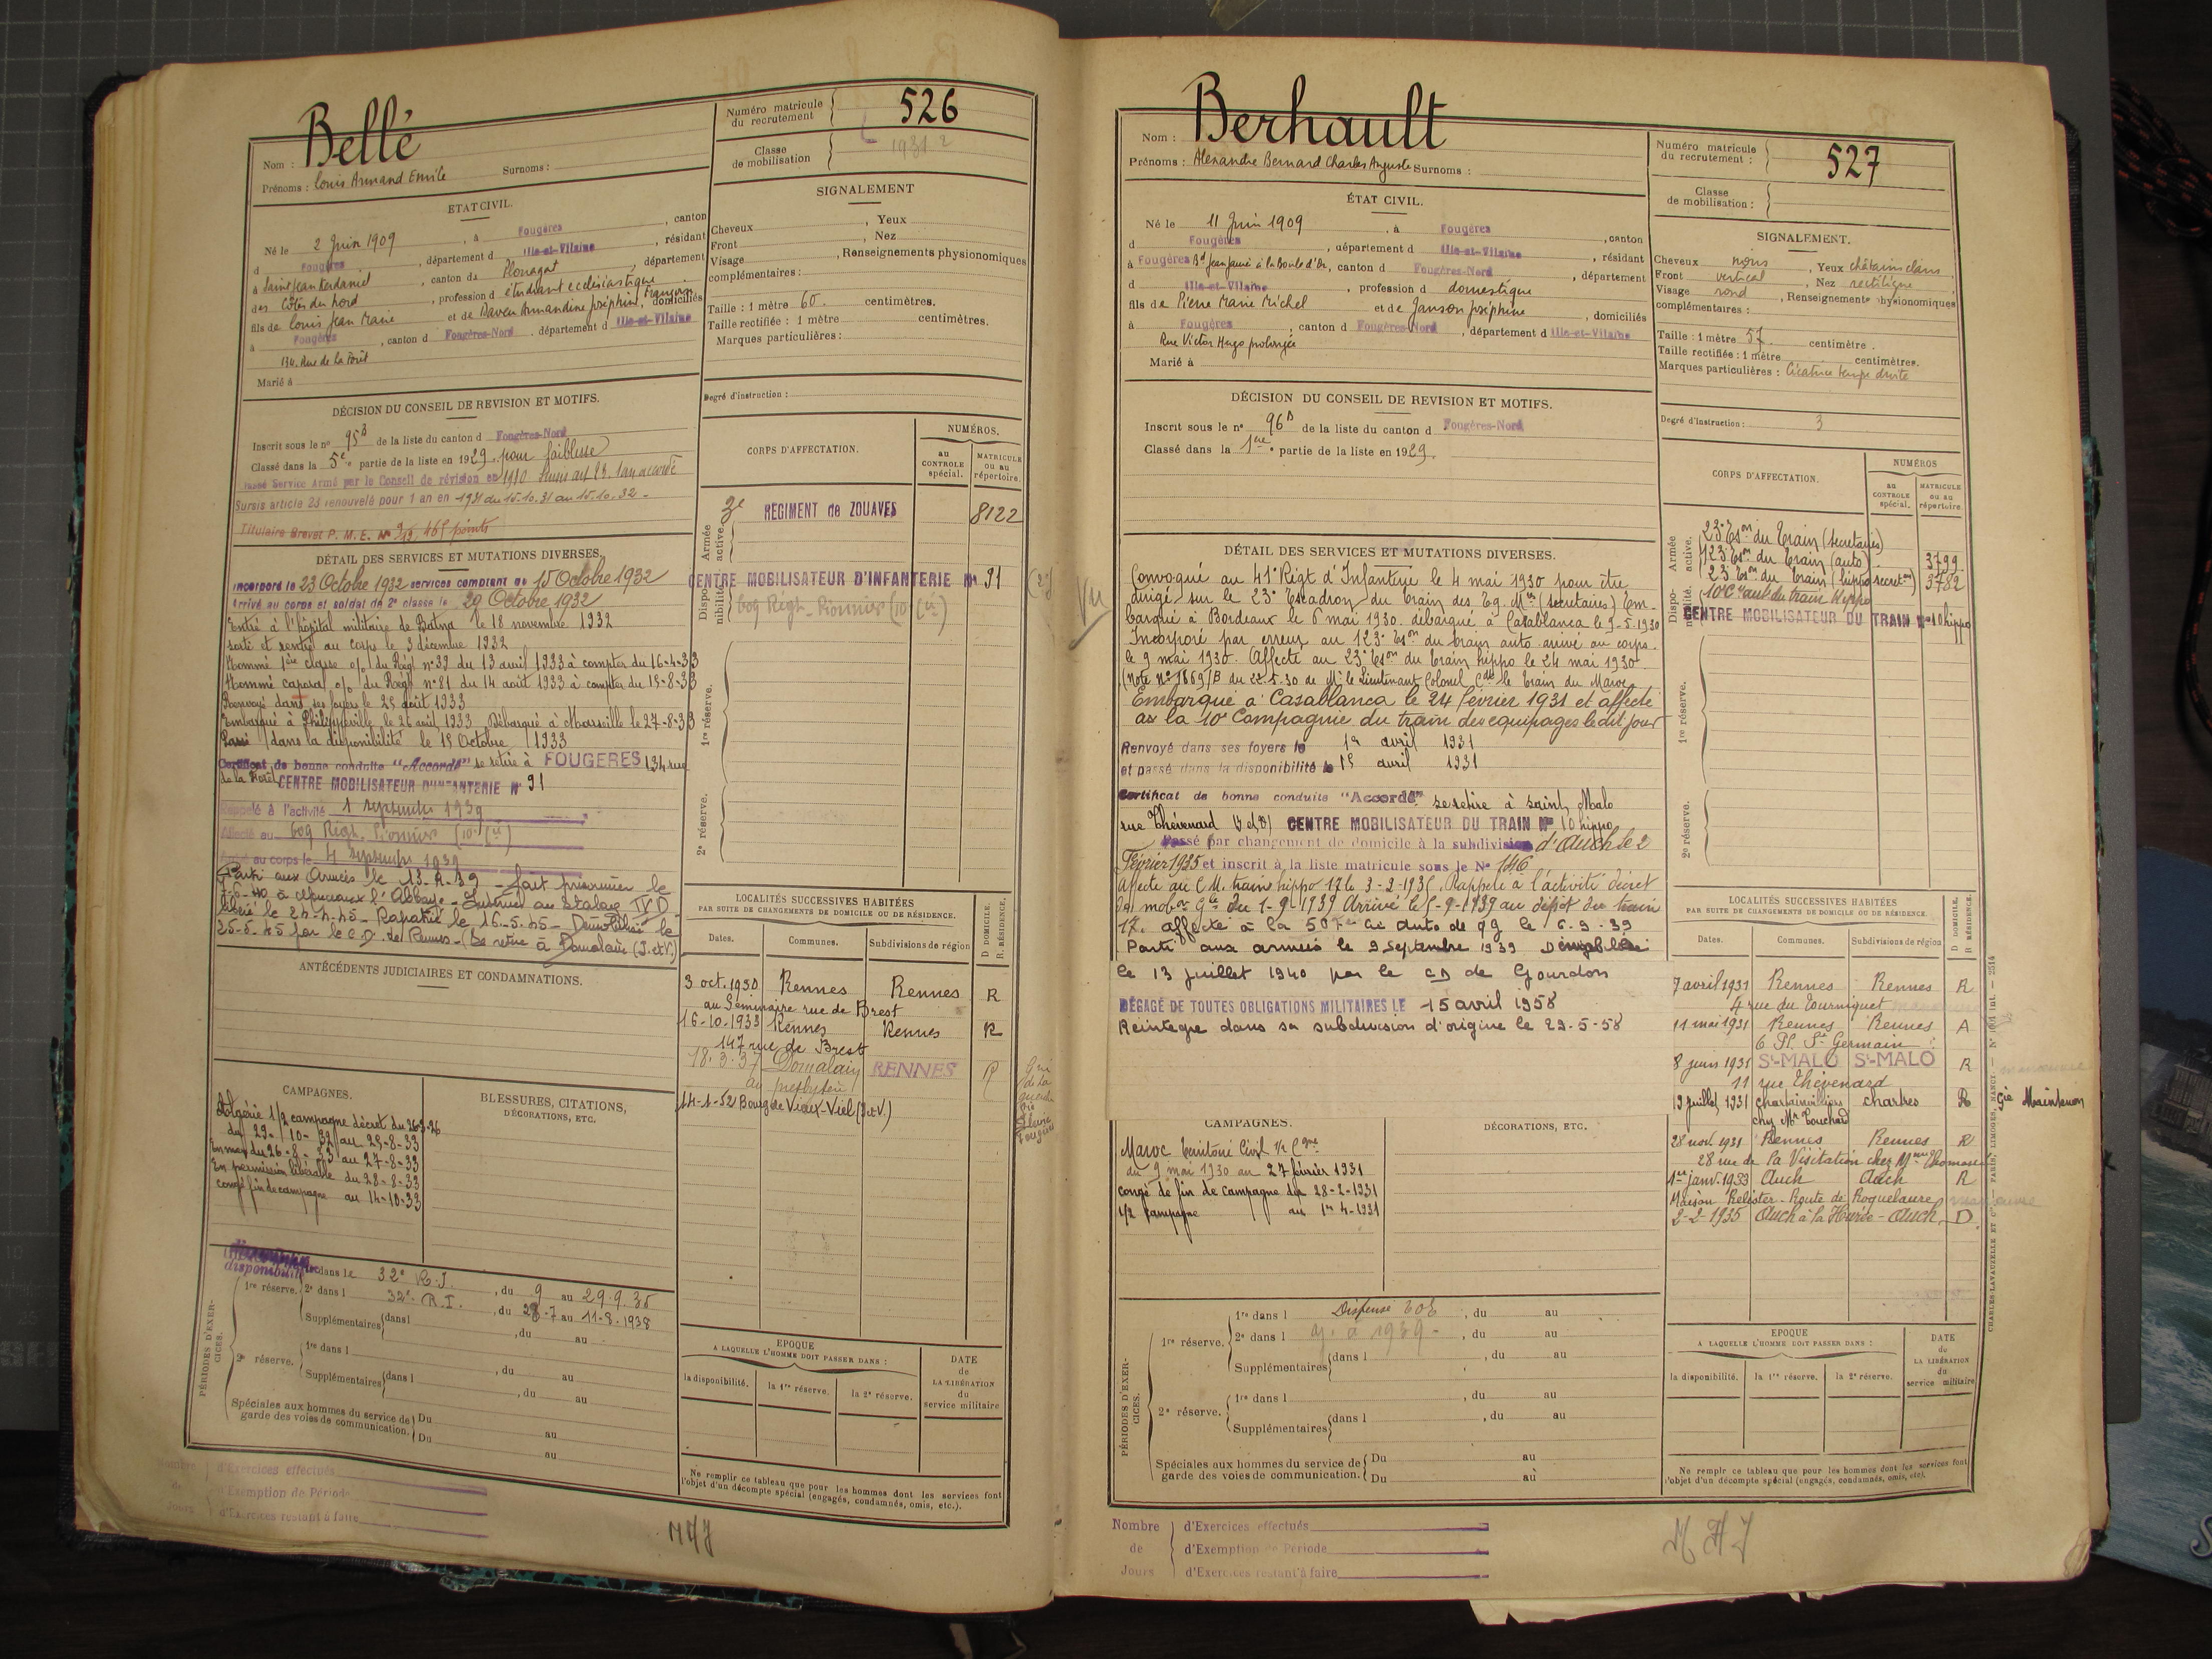 Bellé
Nom :
Prénoms : Louis Armand Emile Surnoms :
Numéro matricule du recrutement 526
Classe de mobilisation 1931 2
ETAT CIVIL.
Né le 2 Juin 1909, à Fougères, canton
d Fougères, département d Ille-et-Vilaine, résidant
à Saint Jean Kerdaniel, canton de Plouagat, département
des Côtes du Nord, profession d étudiant ecclésiastique
fils de Louis Jean Marie et de Daven Armandine Joséphine, Françoise, domiciliés
à Fougères, canton d Fougères-Nord, département d Ille-et-Vilaine
134, Rue de la Forêt
Marié à
SIGNALEMENT
Cheveux , Yeux
Front , Nez
Visage , Renseignements physionomiques
complémentaires :
Taille : 1 mètre 60. centimètres.
Taille rectifiée : 1 mètre centimètres.
Marques particulières :
Degré d'instruction :
DÉCISION DU CONSEIL DE REVISION ET MOTIFS.
Inscrit sous le no 95B de la liste du canton d Fougères-Nord
Classé dans la 5e partie de la liste en 1929, pour faiblesse
Classé Service Armé par le Conseil de révision en 1930 Sursis art 23. 1 an accordé
Sursis article 23 renouvelé pour 1 an en 1931 du 15.10.31 au 15.10.32.
Titulaire Brevet P. M. E. No 469 points
CORPS D'AFFECTATION.
NUMÉROS.
au CONTROLE spécial.
MATRICULE ou au répertoire.
Armée active.
3e REGIMENT de ZOUAVES 8122
Disponibilité.
CENTRE MOBILISATEUR D'INFANTERIE No 91
609 Régt Pionnier (10e Cie)
1re réserve.
2e réserve.
DÉTAIL DES SERVICES ET MUTATIONS DIVERSES.
Incorporé le 23 Octobre 1932 services comptent du 15 Octobre 1932
Arrivé au corps et soldat de 2e classe le 29 Octobre 1932
Entré à l'hôpital militaire de Batna le 18 novembre 1932
sorti et rentré au corps le 3 décembre 1932
Nommé 1ère classe o/ du Régt no 39 du 13 avril 1933 à compter du 16-4-33
Nommé caporal o/ du Régt no 81 du 14 août 1933 à compter du 15-8-33
Renvoyé dans ses foyers le 25 août 1933
Embarqué à Philippeville le 26 août 1933 Débarqué à Marseille le 27-8-33
Passé dans la disponibilité le 15 Octobre 1933
Certificat de bonne conduite "Accordé" se retire à FOUGERES 134 rue
de la Forêt CENTRE MOBILISATEUR D'INFANTERIE No 91
Rappelé à l'activité 1 septembre 1939
Affecté au 609 Régt. Pionnier (10e Cie)
au corps le 4 septembre 1939
Parti aux Armées le 13-9-39 - fait prisonnier le
7-6-40 à l'Abbaye - Interné au Stalag IV D
libéré le 24-4-45 - Rapatrié le 16-5-45 - Démobilisé le
25-5-45 par le C.D. de Rennes - (Se retire à Domalain (I.et V.)
ANTÉCÉDENTS JUDICIAIRES ET CONDAMNATIONS.
LOCALITÉS SUCCESSIVES HABITÉES
PAR SUITE DE CHANGEMENTS DE DOMICILE OU DE RÉSIDENCE.
D DOMICILE. R RÉSIDENCE.
Dates. Communes. Subdivisions de région
3 oct. 1930 Rennes Rennes R
au Séminaire rue de Brest
16-10-1933 Rennes Rennes R
147 rue de Brest
18.3.37 Domalain RENNES R
au presbytère
14-1-52 Bourg de Vieux-Viel (I et V.)
CAMPAGNES.
Algérie 1/2 campagne décret du 26-3-26
du 29-10-32 au 25-8-33
En mer du 26-8-33 au 27-8-33
En permission libérable du 28-8-33
congé fin de campagne au 14-10-33
BLESSURES, CITATIONS, DÉCORATIONS, ETC.
PÉRIODES D'EXERCICES.
disponibilité dans le 32e R.I., du 9 au 29.9.35
1re réserve. 2e dans l 32e R.I., du 28-7 au 11-8-1938
Supplémentaires dans l , du au
2e réserve. 1re dans l , du au
Supplémentaires dans l , du au
Spéciales aux hommes du service de garde des voies de communication. Du au
Du au
EPOQUE
A LAQUELLE L'HOMME DOIT PASSER DANS :
la disponibilité. la 1re réserve. la 2e réserve.
DATE de LA LIBÉRATION du service militaire
Ne remplir ce tableau que pour les hommes dont les services font
l'objet d'un décompte spécial (engagés, condamnés, omis, etc.).
Nombre de Jours
d'Exercices effectués
d'Exemption de Période
d'Exercices restant à faire
Berhault
Nom :
Prénoms : Alexandre Bernard Charles Auguste Surnoms :
Numéro matricule du recrutement : 527
Classe de mobilisation :
ÉTAT CIVIL.
Né le 11 Juin 1909, à Fougères, canton
d Fougères, département d Ille-et-Vilaine, résidant
à Fougères Bd Jean Jaurès à la Boule d'Or, canton d Fougères-Nord, département
d Ille-et-Vilaine, profession d domestique
fils de Pierre Marie Michel et de Janson Joséphine, domiciliés
à Fougères, canton d Fougères-Nord, département d Ille-et-Vilaine
Rue Victor Hugo prolongée
Marié à
SIGNALEMENT.
Cheveux noirs, Yeux châtains clairs
Front vertical, Nez rectiligne
Visage rond, Renseignements physionomiques
complémentaires :
Taille : 1 mètre 57 centimètre.
Taille rectifiée : 1 mètre centimètres.
Marques particulières : Cicatrice tempe droite
Degré d'instruction : 3
DÉCISION DU CONSEIL DE REVISION ET MOTIFS.
Inscrit sous le no 96B de la liste du canton d Fougères-Nord
Classé dans la 1ère partie de la liste en 1929.
CORPS D'AFFECTATION.
NUMÉROS
au CONTROLE spécial.
MATRICULE ou au répertoire.
Armée active.
23e Eson du train (secrétaires)
123 Eson du train (auto) 3799
23 Eson du train (hippo secret.) 3782
Disponibilité.
10e Cie aut du train hippo
CENTRE MOBILISATEUR DU TRAIN No 10 hippo
1re réserve.
2e réserve.
DÉTAIL DES SERVICES ET MUTATIONS DIVERSES.
Vu
Convoqué au 41e Régt d'Infanterie le 4 mai 1930 pour être
dirigé sur le 23e Escadron du train des Eq. Mres (secrétaires) Em-
barqué à Bordeaux le 6 mai 1930. débarqué à Casablanca le 9-5-1930
Incorporé par erreur au 123e Eson du train auto arrivé au corps
le 9 mai 1930. Affecté au 23e Eson du train hippo le 24 mai 1930
(Note No 1869/B du 22.5.30 de Mr le Lieutenant Colonel Cdt le train du Maroc
Embarqué à Casablanca le 24 février 1931 et affecté
as la 10e Compagnie du train des équipages le dit jour
Renvoyé dans ses foyers le 1er avril 1931
et passé dans la disponibilité le 15 avril 1931
Certificat de bonne conduite "Accordé" se retire à saint Malo
rue Thévenard CENTRE MOBILISATEUR DU TRAIN No 10 hippo
Passé par changement de domicile à la subdivision d'Auch le 2
Février 1935 et inscrit à la liste matricule sous le No 146
Affecté au C.M. train hippo 17 le 3-2-1935. Rappelé à l'activité décret
de mobon gle du 1-9-1939 Arrivé le 5-9-1939 au dépôt du train
17. affecté à la 507e Cie auto de QG le 6.9.39
Parti aux armées le 9 Septembre 1939 Démobilisé
le 13 juillet 1940 par le CD de Gourdon
DÉGAGÉ DE TOUTES OBLIGATIONS MILITAIRES LE 15 avril 1958
Réintégré dans sa subdivision d'origine le 29-5-58
LOCALITÉS SUCCESSIVES HABITÉES
PAR SUITE DE CHANGEMENTS DE DOMICILE OU DE RÉSIDENCE.
D DOMICILE. R RÉSIDENCE.
Dates. Communes. Subdivisions de région
7 avril 1931 Rennes Rennes R
4 rue du Tourniquet
11 mai 1931 Rennes Rennes A
6 Pl. St Germain
8 juin 1931 St-MALO St-MALO R
11 rue Thévenard
19 juillet 1931 Chartainvilliers Chartres R Gie Maintenon
chez Mr Touchard
28 nov. 1931 Rennes Rennes R
28 rue de la Visitation chez Mme Thomasse
1er janv. 1933 Auch Auch R
Maison Relester - Route de Roquelaure
2-2-1935 Auch à la Hurée - Auch D
CAMPAGNES.
Maroc territoire Civil 1/2 Cgne
du 9 mai 1930 au 27 février 1931
congé de fin de campagne du 28-2-1931
1/2 campagne au 1er 4-1931
DÉCORATIONS, ETC.
PÉRIODES D'EXERCICES.
1re réserve. 1re dans l Dispensé , du au
2e dans l 1939 , du au
Supplémentaires dans l , du au
2e réserve. 1re dans l , du au
Supplémentaires dans l , du au
Spéciales aux hommes du service de garde des voies de communication. Du au
Du au
EPOQUE
A LAQUELLE L'HOMME DOIT PASSER DANS :
la disponibilité. la 1re réserve. la 2e réserve.
DATE de LA LIBÉRATION du service militaire
Ne remplr ce tableau que pour les hommes dont les services font
l'objet d'un décompte spécial (engagés, condamnés, omis, etc).
CHARLES-LAVAUZELLE ET Cie PARIS, LIMOGES, NANCY
Nombre de Jours
d'Exercices effectués
d'Exemption de Période
d'Exercices restant à faire